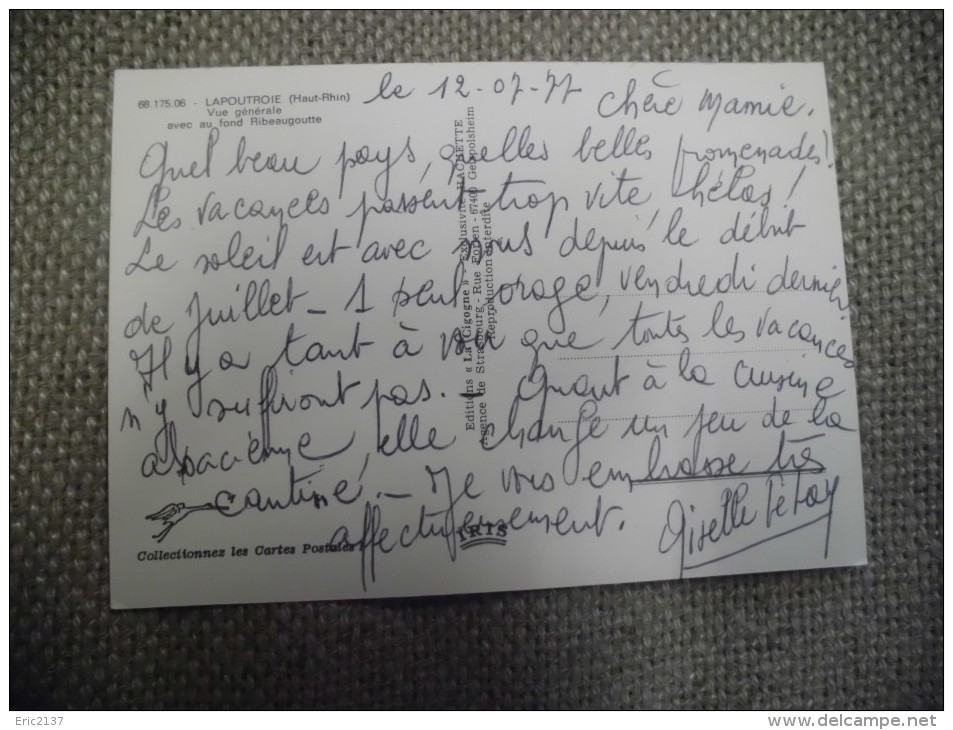 68.175.06 - LAPOUTROIE (Haut-Rhin)
Vue générale
avec au fond Ribeaugoutte
le 12-07-77
Chère Mamie.
Quel beau pays, quelles belles promenades!
Les vacances passent trop vite hélas!
Le soleil est avec nous depuis le début
de Juillet - 1 petit orage, vendredi dernier
Il y a tant à voir que toutes les vacances
n'y suffiront pas. - Quant à la cuisine
alsacienne, elle change un peu de la
cantine. - Je vous embrasse très
affectueusement.
Giselle
Editions « La Cigogne » - Exclusivité HACHETTE
Agence de Strasbourg - Rue Forien - 67400 Geispolsheim
Reproduction interdite
IRIS
Collectionnez les Cartes Postales !
Eric2137
www.delcampe.net